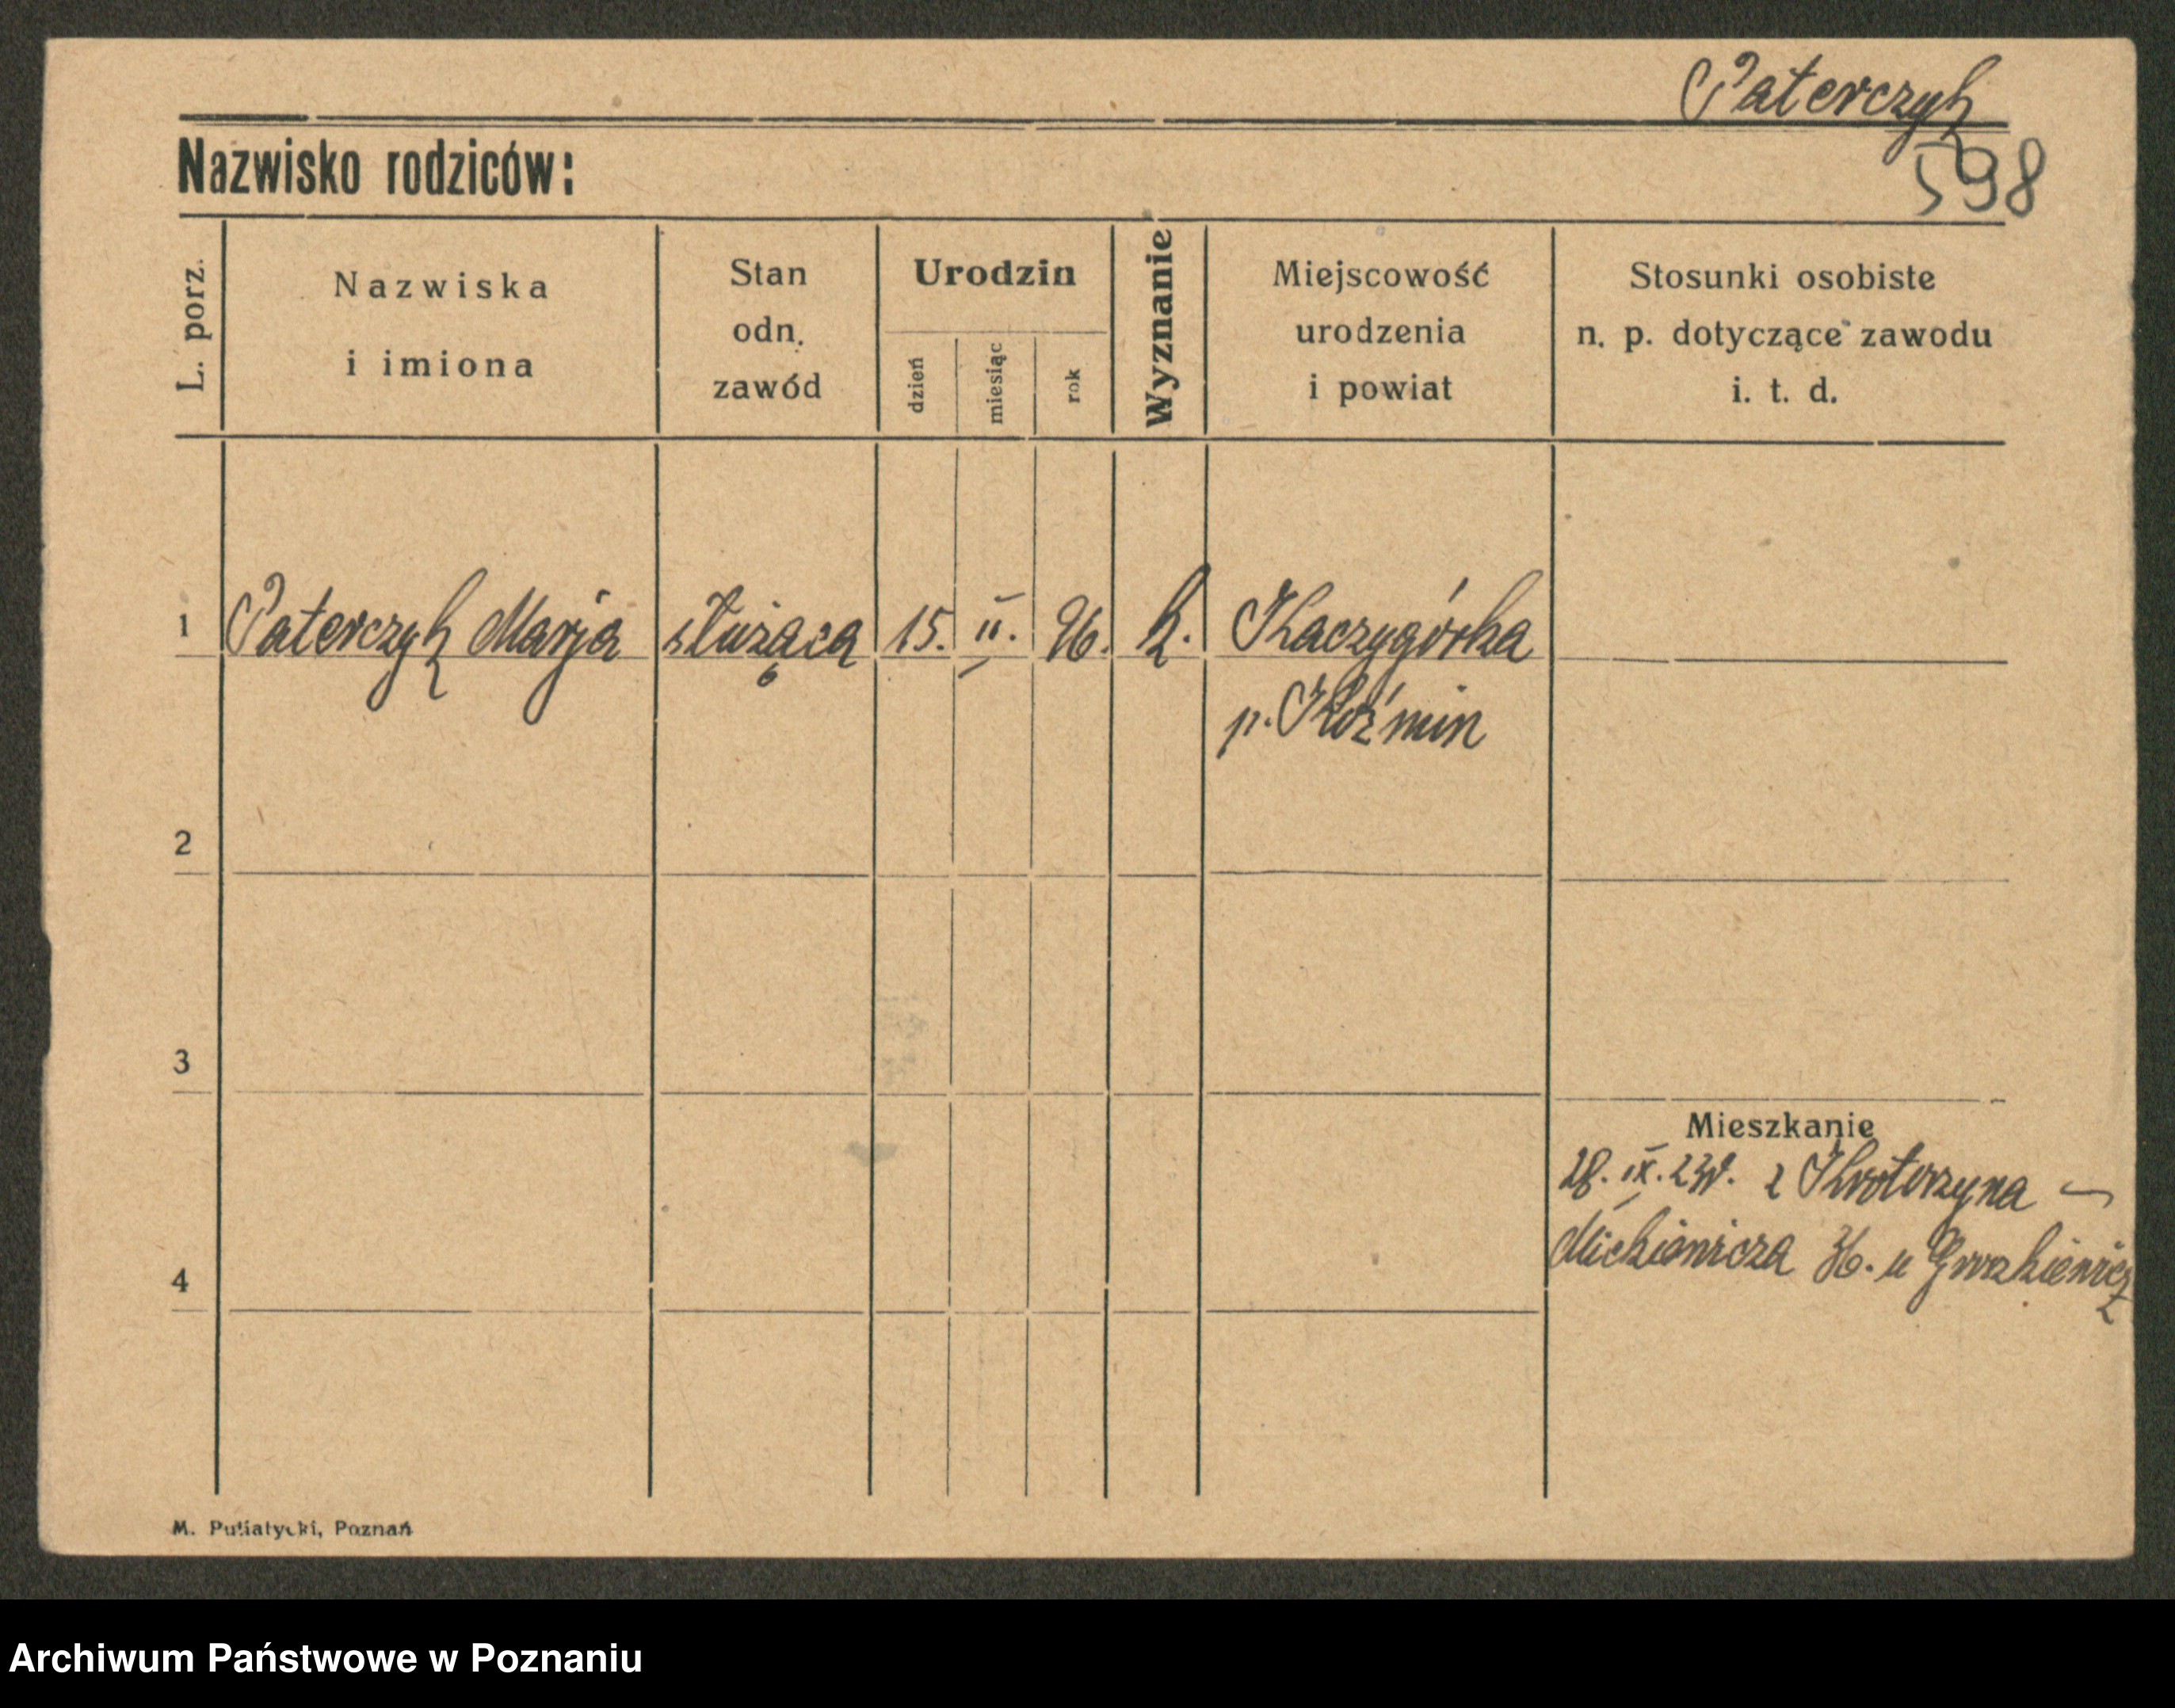 Paterczyk
598
Nazwisko rodziców:
L. porz.
Nazwiska
i imiona
Stan
odn.
zawód
Urodzin
dzień
miesiąc
rok
Wyznanie
Miejscowość
urodzenia
i powiat
Stosunki osobiste
n. p. dotyczące zawodu
i. t. d.
1 Paterczyk Marja służąca 15. II. 96. k. Kaczagórka
p. Koźmin
2
3
Mieszkanie
28. IX. z Krotoszyna –
Mickiewicza 36. u
4
M. Putiatycki, Poznań
Archiwum Państwowe w Poznaniu